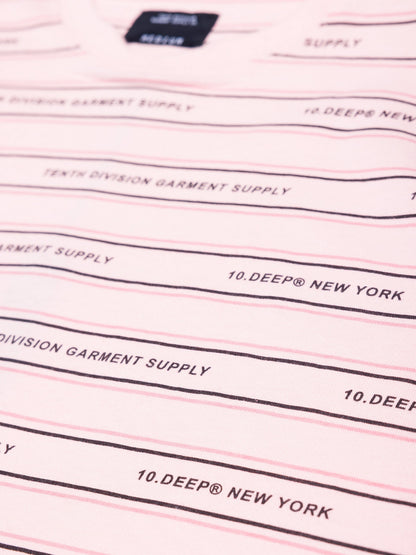 SUPPLY
DIVISION GARMENT SUPPLY 10.DEEP® NEW
TENTH DIVISION GARMENT SUPPLY 10.
GARMENT SUPPLY 10.DEEP® NEW YORK
DIVISION GARMENT SUPPLY 10.DEEP®
10.DEEP® NEW YORK